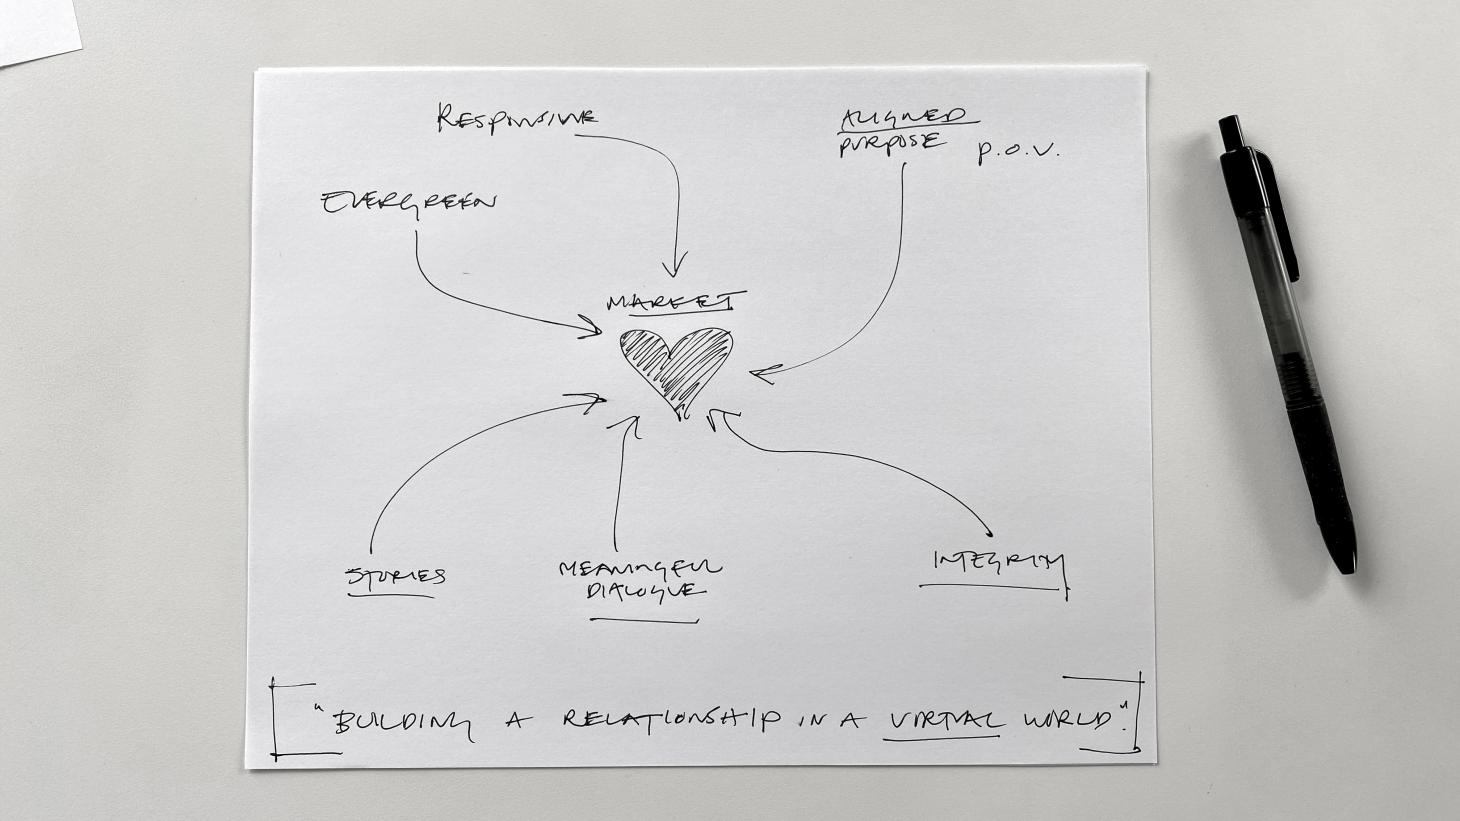 RESPONSIVE
ALIGNED
PURPOSE P.O.V.
EVERGREEN
MARKET
STORIES
MEANINGFUL
DIALOGUE
INTEGRITY
"BUILDING A RELATIONSHIP IN A VIRTUAL WORLD."